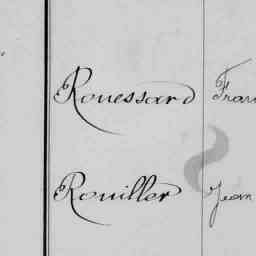 Rouessard Fran
Rouiller Jean